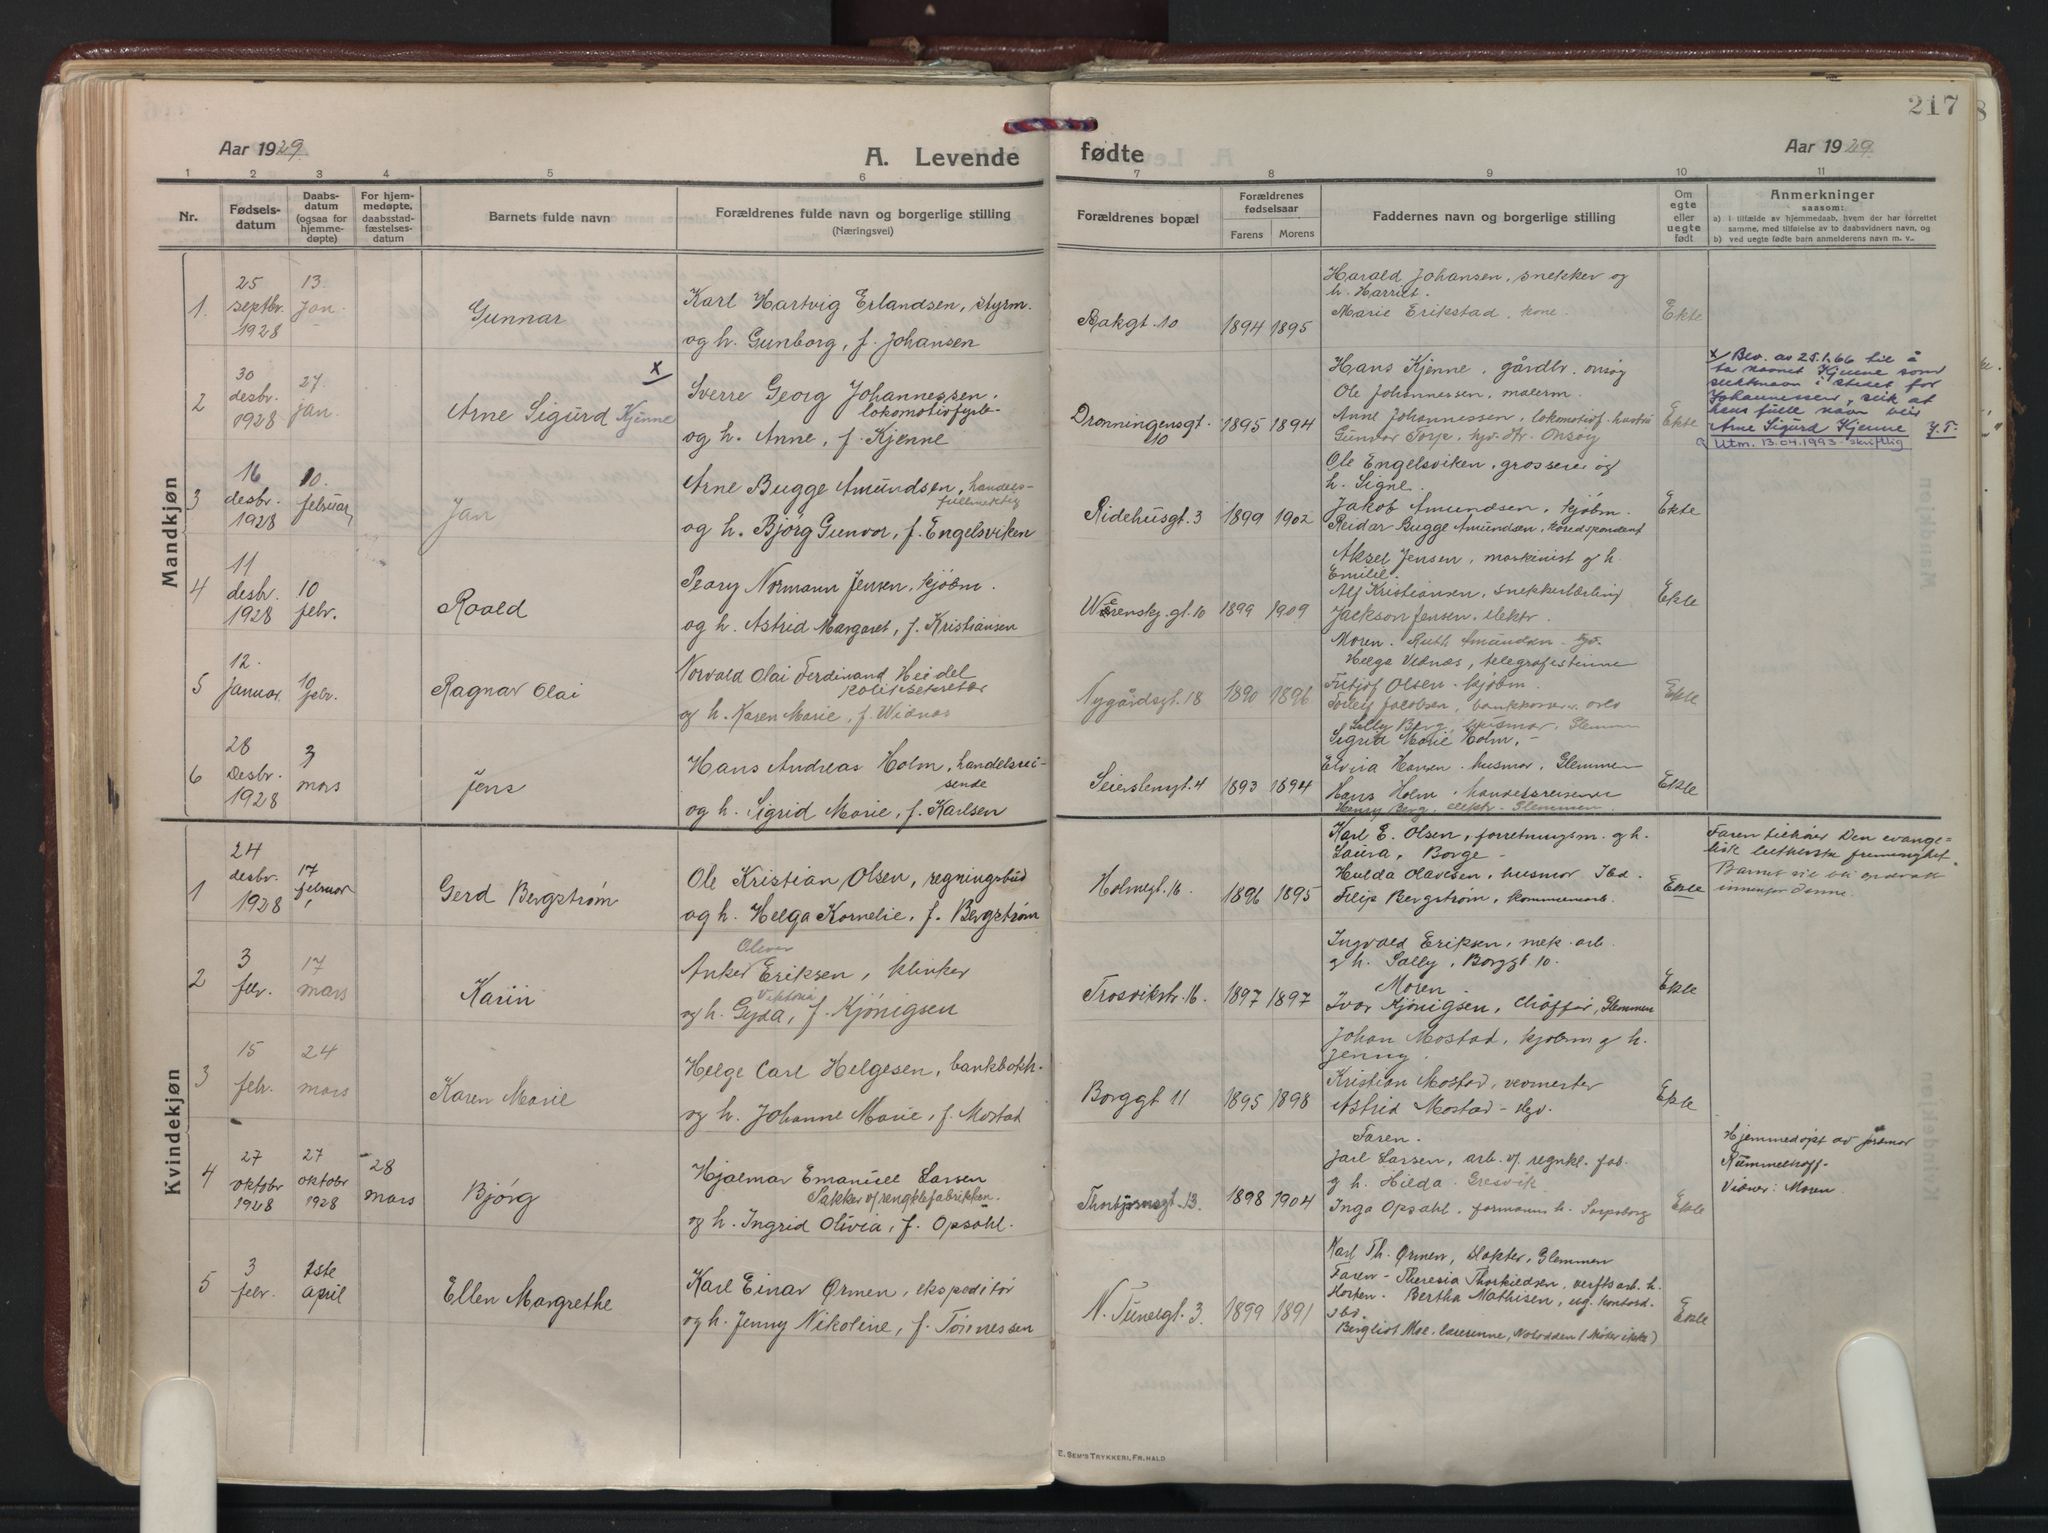 217
Aar 1929
A. Levende fødte
Aar 1929
1 2 3 4 5 6 7 8 9 10 11
Nr.
Fødsels-
datum
Daabs-
datum
(ogsaa for
hjemme-
døpte)
For hjem-
medøpte,
daabsstad-
fæstelses-
datum
Barnets fulde navn
Forældrenes fulde navn og borgerlige stilling
(Næringsvei)
Forældrenes bopæl
Forældrenes
fødselsaar
Farens Morens
Faddernes navn og borgerlige stilling
Om
egte
eller
uegte
født
Anmerkninger
saasom:
a) i tilfælde av hjemmedaab, hvem der har forrettet
samme, med tilføielse av to daabsvidners navn m. v.,
b) ved uegte fødte barn anmelderens navn m. v..
Mandkjøn
1.
25
septbr.
1928
13.
jan.
Gunnar
Karl Hartvig Erlandsen, styrm.
og h. Gunborg, f. Johansen
Bakgt. 10
1894 1895
Harald Johansen, snekker og
h. Harriet.
Marie Erikstad, kone.
Ekte
2
30
desbr.
1928
27
jan.
x
Arne Sigurd Kjenne
Sverre Georg Johannessen,
lokomotivfyrb.
og h. Anne, f. Kjenne
Dronningensgt.
10
1895 1894
Hans Kjenne, gårdbr. Onsøy
Ole Johannessen, malerm.
Anne Johannessen, lokomotivf. hustru
Gunvor Torp, Onsøy
Ekte
x Bev. av 25.1.66 til å
ta navnet Kjenne som
slektsnavn i stedet for
Johannessen, slik at
hans fulle navn blir
Arne Sigurd Kjenne
Utm. 13.04.1993 - skriftlig
3
16
desbr.
1928
10.
februar
Jan
Arne Bugge Amundsen, handels-
fullmektig
og h. Bjørg Gunvor, f. Engelsviken
Ridehusgt. 3
1899 1902
Ole Engelsviken, grosserer og
h. Signe.
Jakob Amundsen, kjøbm.
Reidar Bugge Amundsen, korrespondent
Ekte
4
11
desbr.
1928
10
febr.
Roald
Peary Normann Jensen, kjøbm.
og h. Astrid Margaret, f. Kristiansen
Werensk. gt. 10
1899 1909
Aksel Jensen, maskinist g h.
Emilie.
Alf Kristiansen, snekkerlærling
Jackson Jensen, elektr.
Ekte
5
12.
januar
10
febr.
Ragnar Olai
Norvald Olai Ferdinand Heidel
politisekretær
og h. Karen Marie, f. Widnas
Nygårdsgt. 18
1890 1896
Moren. Ruth Amundsen
Helga Vidnas, telegrafistinne
Fritjof Olsen - kjøbm.
Jacobsen, Oslo
Sally Berg, husmor, Glemmen
Ekte
6
28
Desbr.
1928
3
mars
Jens
Hans Andreas Holm, handelsrei-
sende
og h. Sigrid Marie, f. Karlsen
Seierstensgt. 4
1893 1894
Sigrid Marie Holm, -
Elvira Hansen, husmor, Glemmen
Hans Holm, handelsreisende
Henry Berg, elektr. Glemmen.
Ekte
Kvindekjøn
1
24
desbr.
1928
17
februar
Gerd Bergstrøm
Ole Kristian Olsen, regningsbud
og h. Helga Kornelie, f. Bergstrøm
Holmegt. 16.
1896 1895
Karl E. Olsen, forretningsm. g h.
Laura, Borge -
Hulda Olavesen, husmor Ibd.
Filip Bergstrøm, kommunearb.
Ekte
Faren tilhører Den evange-
lisk lutherske frimenighet.
Barnet vil bli opdratt
innenfor denne.
2
3
febr.
17
mars
Karin
Anker Oliver Eriksen, klinker
og h. Gyda Viktoria, f. Kjønigsen
Trosvikstr. 16.
1897 1897
Ingvald Eriksen, mek. arb.
g h. Sally, Borggt 10.
Moren.
Ivar Kjønigsen, chåffør, Glemmen
Ekte
3
15
febr.
24
mars
Karen Marie
Helge Carl Helgesen, bankbokh.
og h. Johanne Marie, f. Mostad
Borggt 11
1895 1898
Johan Mostad, kjøbm. g h.
Jenny.
Kristian Mostad, veimester
Astrid Mostad -
Ekte
4
27
oktobr
1928
27
oktober
1928
28
mars
Bjørg
Hjalmar Emanuel Larsen
Pakker v/ rengklefabrikken.
og h. Ingrid Olivia, f. Opsahl.
Thorbjørnsgt. 13.
1898 1904
Faren.
Jarl Larsen, arb. v/ regnkl. fab.
g h. Hilda. Gresvik
Inga Opsahl, formanns h. Sarpsborg
Ekte
Hjemmedøpt av jordmor
Rummelhoff -
Vidner: Moren.
5
3
febr.
1ste
april
Ellen Margrethe
Karl Einar Ørmen, ekspeditør
og h. Jenny Nikoline, f. Tønnessen
N. Tunelgt. 3.
1899 1891
Karl Th. Ørmen, Slakter, Glemmen
Faren - Theresia Thorkildsen, verftsarb. h.
Horten. Bertha Mathisen, ug. kontord.
ibd.
Bergliot Moe, lærerinne, Notodden (Møter ikke)
Ekte
E. SEM'S TRYKKERI, FR.HALD